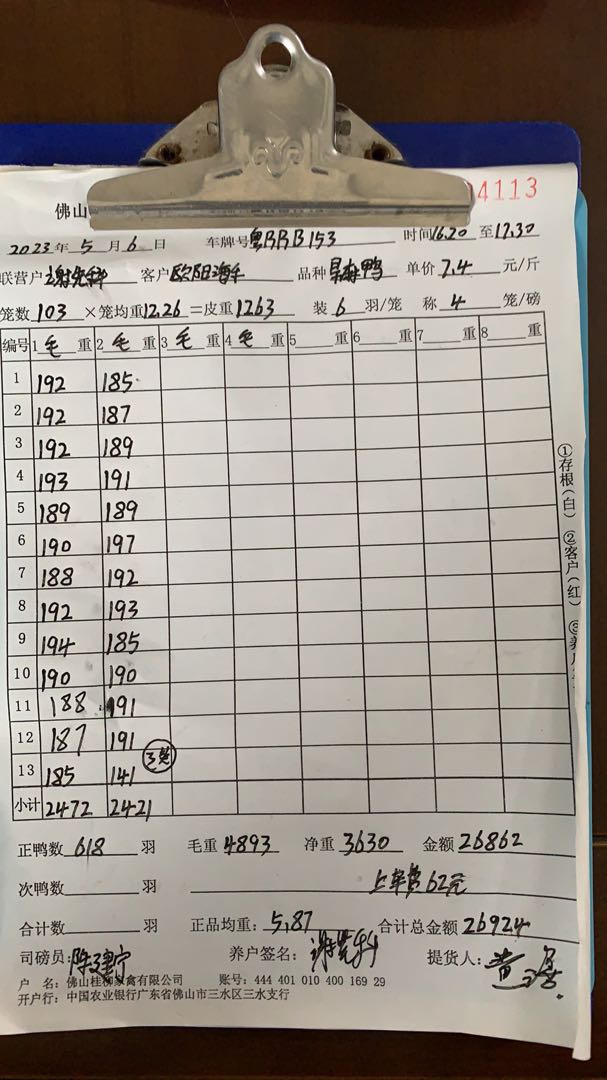 佛山
04113
2023年5月6日 车牌号 时间16.20至17.30
联营户 客户欧阳 品种 鸭 单价7.4元/斤
笼数103×笼均重12.26=皮重1263 装6羽/笼 称4笼/磅
编号 1毛重 2毛重 3毛重 4毛重 5重 6重 7重 8重
1 192 185
2 192 187
3 192 189
4 193 191
5 189 189
6 190 197
7 188 192
8 192 193
9 194 185
10 190 190
11 188 191
12 187 191
13 185 141 3笼
小计 2472 2421
正鸭数618羽 毛重4893 净重3630 金额26862
次鸭数羽 上车费62元
合计数羽 正品均重:5.87 合计总金额26924
司磅员:陈建宁 养户签名: 提货人:
户 名:佛山桂柳家禽有限公司 账号:444 401 010 400 169 29
开户行:中国农业银行广东省佛山市三水区三水支行
①存根(白) ②客户(红) ③养